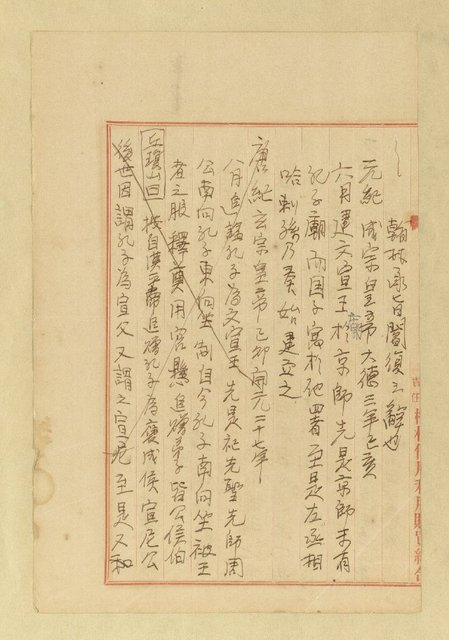 翰林承旨閻復之辭也
元紀 成宗皇帝大德三年己亥
六月建文宣王廟於京師先是京師未有
孔子廟而国子寓於他署至是左丞相
哈剌孫乃奏始建立之
唐紀玄宗皇帝己卯開元二十七年
八月追諡孔子為文宣王先是祀先聖先師周
公南向孔子東向坐制自今孔子南向坐被王
者之服釋奠用宮懸追贈弟子皆公侯伯
丘瓊山曰 按自漢平帝追諡孔子為褒成侯宣尼公
後世因謂孔子為宣父又謂之宣尼至是又和